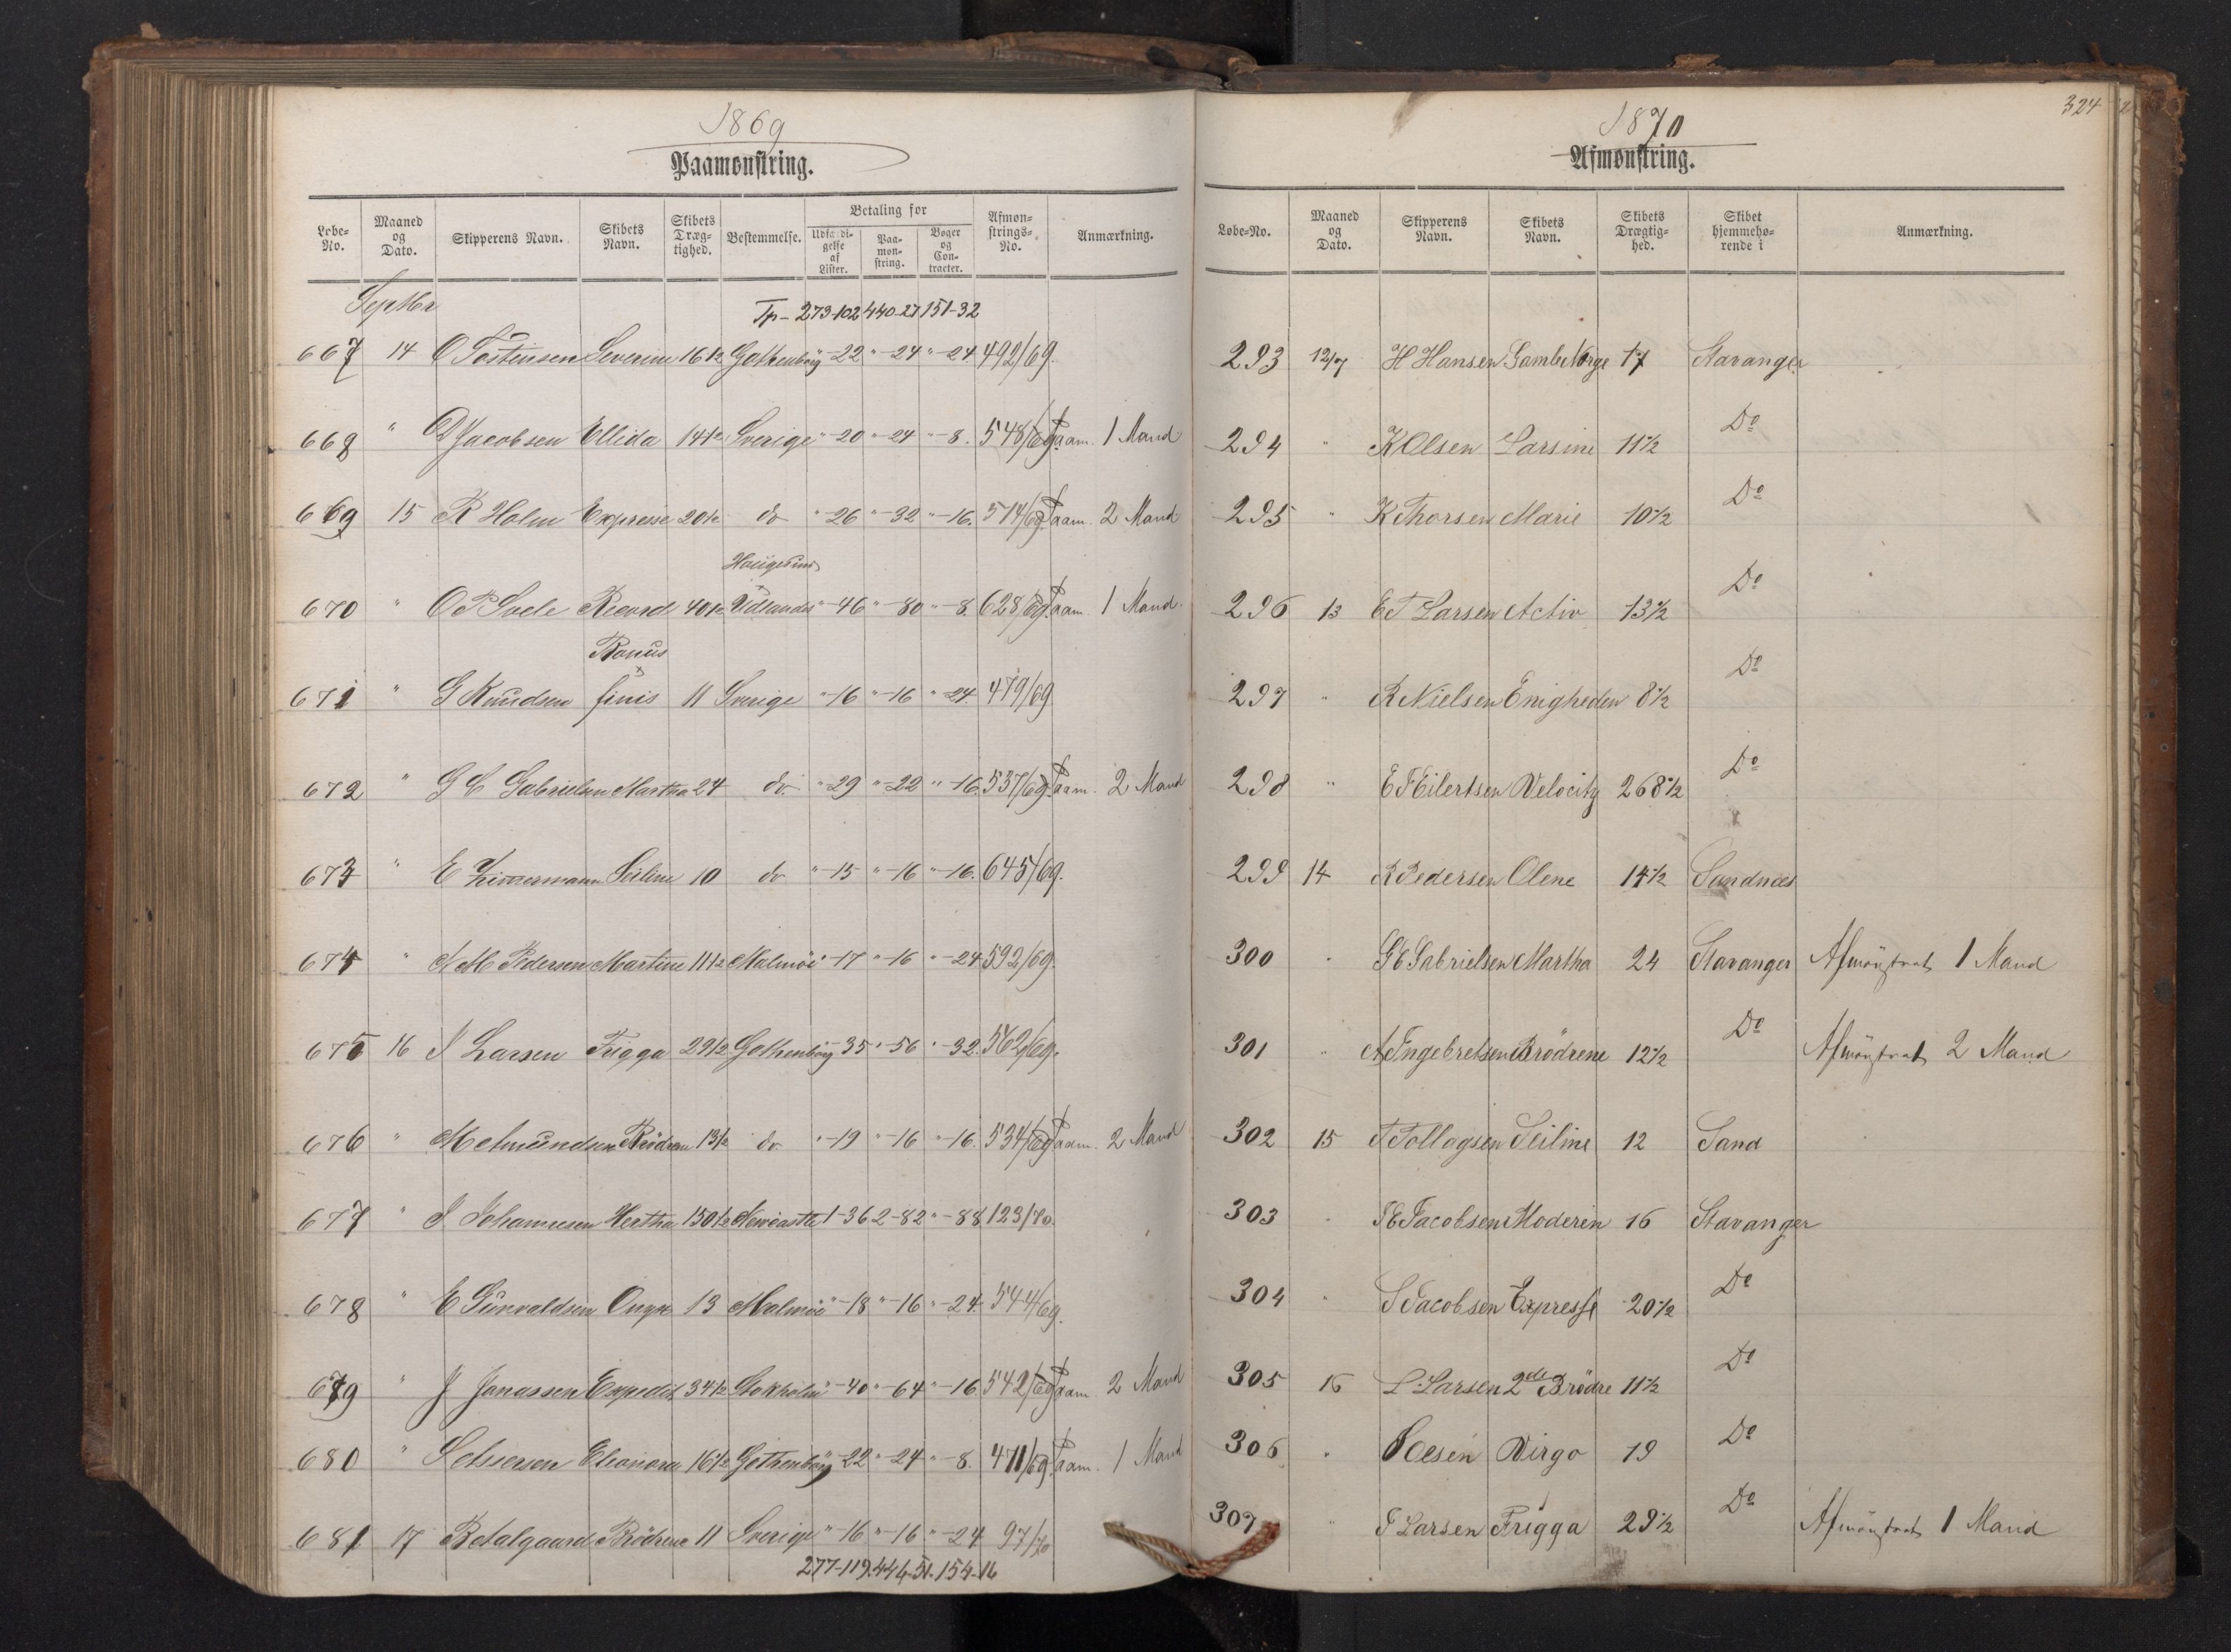 1869
Paamønstring.
Løbe-No. Maaned og Dato. Skipperens Navn. Skibets Navn. Skibets Drægtighed. Bestemmelse. Betaling for Udfærdigelse af Lister. Paamønstring. Bøger og Contracter. Afmønstrings-No. Anmærkning.
Septbr Tp - 273-102 440-27 151-32
667 14 O Tostensen Severine 16½ Gothenborg " -22 " -24 " -24 492/69.
668 " O Jacobsen Ellida 14½ Sverige " -20 " -24 " -8. 548/69 Paam. 1 Mand
669 15 R Holm Expresse 20½ do " -26 " -32 " -16. 514/69. Paam. 2 Mand
Haugesund
670 " O P Svele Record 40½ Udlandet " -46 " -80 " -8. 628/69. Paam. 1 Mand.
Bonus
671 " G Knudsen finis 11 Sverige " -16 " -16 " -24. 479/69
672 " G E Gabrielsen Martha 24 do " -29 " -22 " -16. 537/69. Paam. 2 Mand
673 " E Zimmermann Seiline 10 do " -15 " -16 " -16. 645/69.
674 " N M Pedersen Martine 11½ Malmöe " -17 " -16 " -24 592/69.
675 16 J Larsen Frigga 29½ Gothenborg -35 " -56 " -32. 562/69.
676 " M Amundsen Brödrene 13½ do. " -19 " -16 " -16. 534/69 Paam. 2 Mand
677 " J Johannesen Hertha 150½ Newcastle 1-36 2-82 " -88 123/70.
678 " E Gunvaldsen Onyx 13 Malmöe " -18 " -16 " -24. 544/69.
679 " J Jonassen Expedit 34½ Stokholm " -40 " -64 " -16. 542/69 Paam. 2 Mand
680 " Eleonora 16½ Gothenborg -22 " -24 " -8. 471/69. Paam. 1 Mand
681 17 B Aalgaard Brödrene 11 Sverige " -16 " -16 " -24 97/70
277-119. 446-51. 154-16
324
1870
Afmønstring.
Løbe-No. Maaned og Dato. Skipperens Navn. Skibets Navn. Skibets Drægtighed. Skibet hjemmehørende i Anmærkning.
293 12/7 H Hansen Gamle Norge 17 Stavanger
294 " K Olsen Larsine 11½ Do
295 " K Thorsen Marie 10½ Do
296 13 E T Larsen Activ 13½ Do
297 " R Nielsen Enigheden 8½ Do
298 " E F Eilertsen Velocity 268½ Do
299 14 R Pedersen Olene 14½ Sandnæs
300 " G E Gabrielsen Martha 24 Stavanger Afmönstret 1 Mand
301 " A Ingebretsen Brödrene 12½ Do Afmönstret 2 Mand
302 15 T Tollagsen Seiline 12 Sand
303 " T E Jacobsen Moderen 16 Stavanger
304 " S Jacobsen Expresse 20½ Do
305 16 L Larsen 2de Brödre 11½ Do
306 " Virgo 19 Do
307 " J Larsen Frigga 29½ Do Afmönstret 1 Mand